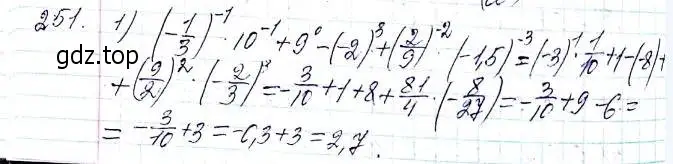 251. 1) (-1/3)^-1 · 10^-1 + 9^0 - (-2)^3 + (2/9)^-2 · (-1,5)^-3 = (-3)^1 · 1/10 + 1 - (-8) +
+ (9/2)^2 · (-2/3)^3 = -3/10 + 1 + 8 + 81/4 · (-8/27) = -3/10 + 9 - 6 =
= -3/10 + 3 = -0,3 + 3 = 2,7.
gdz.top